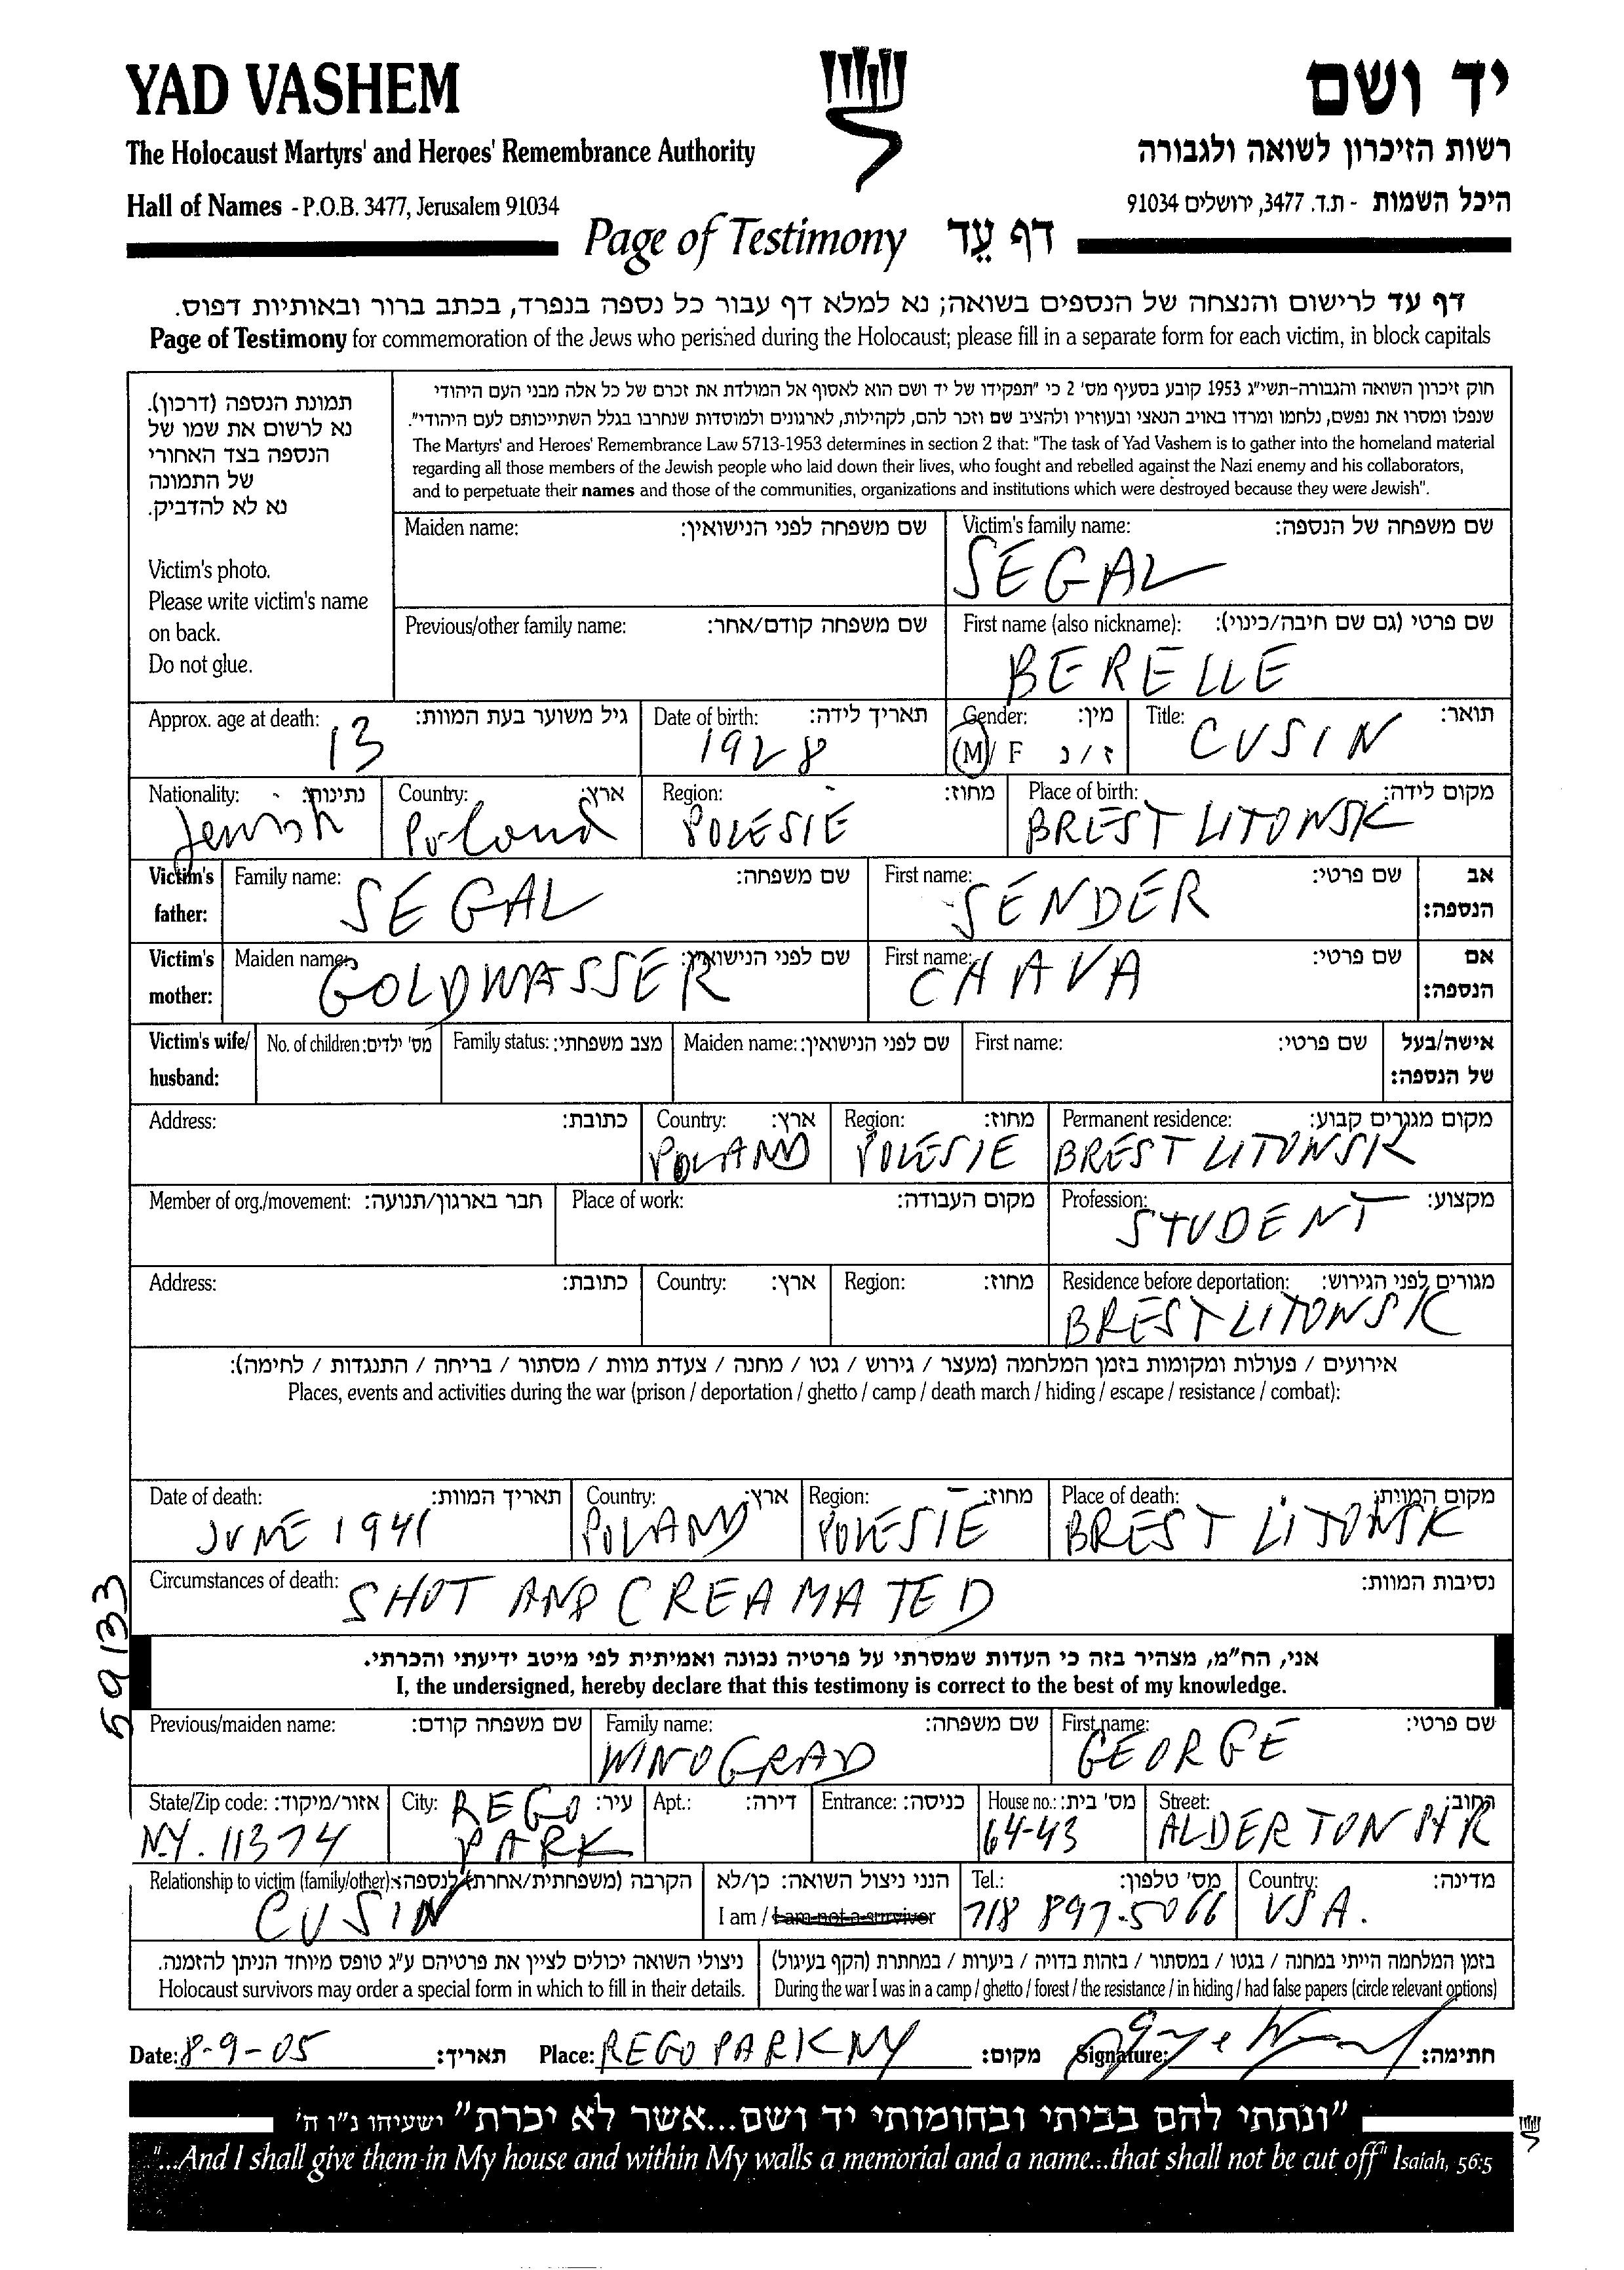 YAD VASHEM
יד ושם
The Holocaust Martyrs' and Heroes' Remembrance Authority
רשות הזיכרון לשואה ולגבורה
Hall of Names - P.O.B. 3477, Jerusalem 91034
היכל השמות - ת.ד. 3477, ירושלים 91034
Page of Testimony דף עֵד
דף עד לרישום והנצחה של הנספים בשואה; נא למלא דף עבור כל נספה בנפרד, בכתב ברור ובאותיות דפוס.
Page of Testimony for commemoration of the Jews who perished during the Holocaust; please fill in a separate form for each victim, in block capitals
תמונת הנספה (דרכון).
נא לרשום את שמו של
הנספה בצד האחורי
של התמונה
נא לא להדביק.
Victim's photo.
Please write victim's name
on back.
Do not glue.
חוק זיכרון השואה והגבורה-תשי"ג 1953 קובע בסעיף מס' 2 כי "תפקידו של יד ושם הוא לאסוף אל המולדת את זכרם של כל אלה מבני העם היהודי
שנפלו ומסרו את נפשם, נלחמו ומרדו באויב הנאצי ובעוזריו ולהציב שם וזכר להם, לקהילות, לארגונים ולמוסדות שנחרבו בגלל השתייכותם לעם היהודי".
The Martyrs' and Heroes' Remembrance Law 5713-1953 determines in section 2 that: "The task of Yad Vashem is to gather into the homeland material
regarding all those members of the Jewish people who laid down their lives, who fought and rebelled against the Nazi enemy and his collaborators,
and to perpetuate their names and those of the communities, organizations and institutions which were destroyed because they were Jewish".
Maiden name: שם משפחה לפני הנישואין:
Victim's family name: שם משפחה של הנספה:
SEGAL
Previous/other family name: שם משפחה קודם/אחר:
First name (also nickname): שם פרטי (גם שם חיבה/כינוי):
BERELLE
Approx. age at death: גיל משוער בעת המוות:
13
Date of birth: תאריך לידה:
1928
Gender: מין:
M / F ז / נ
Title: תואר:
CUSIN
Nationality: נתינות:
Jewish
Country: ארץ:
Poland
Region: מחוז:
POLESIE
Place of birth: מקום לידה:
BREST LITOWSK
Victim's father:
Family name: שם משפחה:
SEGAL
First name: שם פרטי:
SENDER
אב הנספה:
Victim's mother:
Maiden name: שם לפני הנישואין:
GOLDWASSER
First name: שם פרטי:
CHAVA
אם הנספה:
Victim's wife/ husband:
No. of children: מס' ילדים:
Family status: מצב משפחתי:
Maiden name: שם לפני הנישואין:
First name: שם פרטי:
אישה/בעל של הנספה:
Address: כתובת:
Country: ארץ:
POLAND
Region: מחוז:
POLESIE
Permanent residence: מקום מגורים קבוע:
BREST LITOWSK
Member of org./movement: חבר בארגון/תנועה:
Place of work: מקום העבודה:
Profession: מקצוע:
STUDENT
Address: כתובת:
Country: ארץ:
Region: מחוז:
Residence before deportation: מגורים לפני הגירוש:
BREST LITOWSK
אירועים / פעולות ומקומות בזמן המלחמה (מעצר / גירוש / גטו / מחנה / צעדת מוות / מסתור / בריחה / התנגדות / לחימה):
Places, events and activities during the war (prison / deportation / ghetto / camp / death march / hiding / escape / resistance / combat):
Date of death: תאריך המוות:
JUNE 1941
Country: ארץ:
POLAND
Region: מחוז:
POLESIE
Place of death: מקום המוות:
BREST LITOWSK
Circumstances of death: נסיבות המוות:
SHOT AND CREAMATED
59133
אני, הח"מ, מצהיר בזה כי העדות שמסרתי על פרטיה נכונה ואמיתית לפי מיטב ידיעתי והכרתי.
I, the undersigned, hereby declare that this testimony is correct to the best of my knowledge.
Previous/maiden name: שם משפחה קודם:
Family name: שם משפחה:
WINOGRAD
First name: שם פרטי:
GEORGE
State/Zip code: אזור/מיקוד:
N.Y. 11374
City: עיר:
REGO
PARK
Apt.: דירה:
Entrance: כניסה:
House no.: מס' בית:
64-43
Street: רחוב:
ALDERTON
Relationship to victim (family/other): הקרבה (משפחתית/אחרת) לנספה:
CUSIN
הנני ניצול השואה: כן/לא
I am / I am not a survivor
Tel.: מס' טלפון:
718 897-5066
Country: מדינה:
USA.
ניצולי השואה יכולים לציין את פרטיהם ע"ג טופס מיוחד הניתן להזמנה.
Holocaust survivors may order a special form in which to fill in their details.
בזמן המלחמה הייתי במחנה / בגטו / במסתור / בזהות בדויה / ביערות / במחתרת (הקף בעיגול)
During the war I was in a camp / ghetto / forest / the resistance / in hiding / had false papers (circle relevant options)
Date: 8-9-05 תאריך: Place: REGO PARK NY מקום: Signature: חתימה:
"ונתתי להם בביתי ובחומותי יד ושם...אשר לא יכרת" ישעיהו נ"ו ה'
"...And I shall give them in My house and within My walls a memorial and a name...that shall not be cut off" Isaiah, 56:5